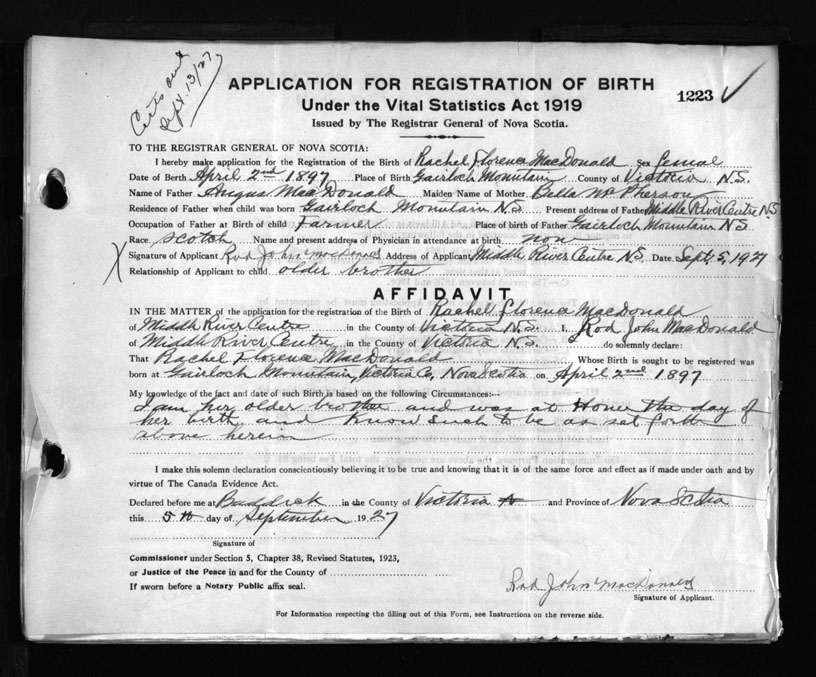 Certs out
Sept 13/27
APPLICATION FOR REGISTRATION OF BIRTH
1223 ✓
Under the Vital Statistics Act 1919
Issued by The Registrar General of Nova Scotia.
TO THE REGISTRAR GENERAL OF NOVA SCOTIA:
I hereby make application for the Registration of the Birth of Rachel Florence MacDonald Sex female
Date of Birth April 2nd 1897 Place of Birth Gairloch Mountain County of Victoria N.S.
Name of Father Angus MacDonald Maiden Name of Mother Bella McPherson
Residence of Father when child was born Gairloch Mountain N.S Present address of Father Middle River Centre N.S
Occupation of Father at Birth of child Farmer Place of birth of Father Gairloch Mountain NS
Race scotch Name and present address of Physician in attendance at birth non
X Signature of Applicant Rod John MacDonald Address of Applicant Middle River Centre N.S. Date Sept, 5, 1927
Relationship of Applicant to child older brother
AFFIDAVIT
IN THE MATTER of the application for the registration of the Birth of Rachell Florence MacDonald
of Middle River Centre in the County of Victoria N.S. I, Rod John MacDonald
of Middle River Centre in the County of Victoria N.S. do solemnly declare:
That Rachel Florence MacDonald Whose Birth is sought to be registered was
born at Gairloch Mountain, Victoria Co, Nova Scotia on April 2nd 1897
My knowledge of the fact and date of such Birth is based on the following Circumstances:—
I am her older brother and was at Home the day of
her birth and know such to be as set forth
above herein
I make this solemn declaration conscientiously believing it to be true and knowing that it is of the same force and effect as if made under oath and by
virtue of The Canada Evidence Act.
Declared before me at Baddeck in the County of Victoria and Province of Nova Scotia
this 5th day of September 1927
Signature of
Commissioner under Section 5, Chapter 38, Revised Statutes, 1923,
or Justice of the Peace in and for the County of
If sworn before a Notary Public affix seal.
Rod John MacDonald
Signature of Applicant.
For Information respecting the filling out of this Form, see Instructions on the reverse side.